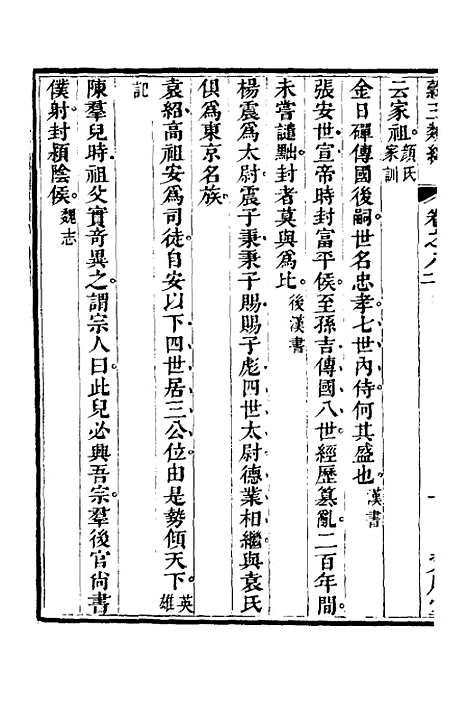 云家祖。顔氏家訓
金日磾傳國後嗣世名忠孝七世內侍何其盛也。漢書
張安世宣帝時封富平侯至孫吉傳國八世經歷篡亂二百年間。
未嘗譴黜封者莫與爲比。後漢書
楊震爲太尉震子秉秉子賜賜子彪四世太尉德業相繼與袁氏
俱爲東京名族。
袁紹高祖安爲司徒自安以下四世居三公位由是勢傾天下。英雄
記
陳羣兒時祖父實奇異之謂宗人曰此兒必興吾宗。羣後官尙書
僕射封潁陰侯。魏志